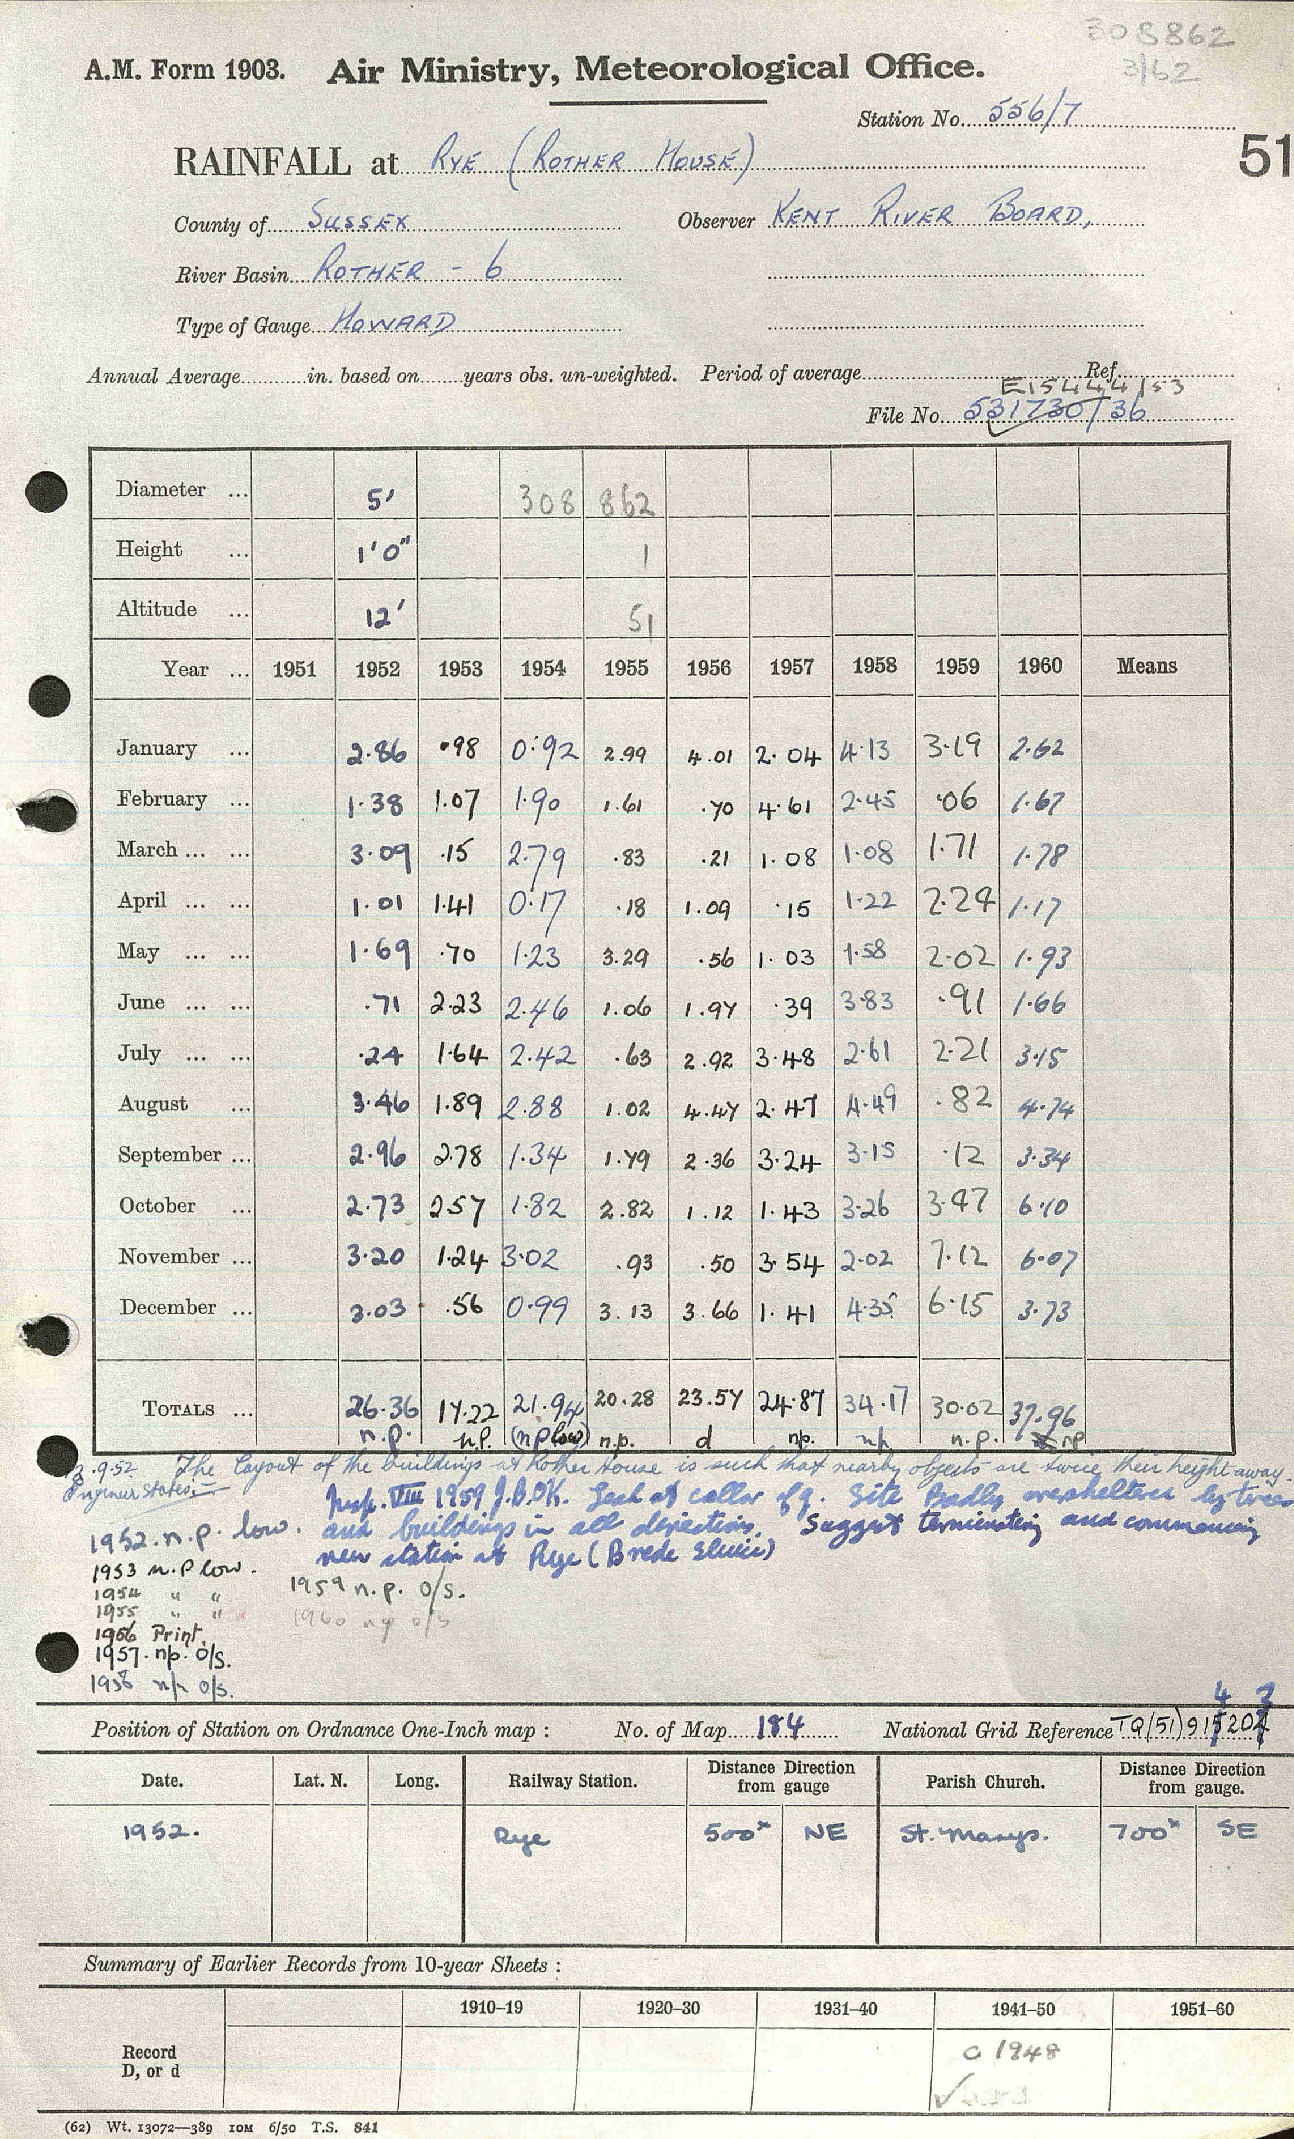 308862
3/62
A.M. Form 1903. Air Ministry, Meteorological Office.
Station No. 556/7
51
RAINFALL at RYE (ROTHER HOUSE)
County of SUSSEX Observer KENT RIVER BOARD,
River Basin ROTHER - 6
Type of Gauge HOWARD
Annual Average in. based on years obs. un-weighted. Period of average Ref.
E15444/53
File No. 531730/36
Diameter ... 5' 308 862
Height ... 1'0" 1
Altitude ... 12' 51
Year ... 1951 1952 1953 1954 1955 1956 1957 1958 1959 1960 Means
January ... 2.86 .98 0.92 2.99 4.01 2.04 4.13 3.19 2.62
February ... 1.38 1.07 1.90 1.61 .70 4.61 2.45 .06 1.67
March ... ... 3.09 .15 2.79 .83 .21 1.08 1.08 1.71 1.78
April ... ... 1.01 1.41 0.17 .18 1.09 .15 1.22 2.24 1.17
May ... ... 1.69 .70 1.23 3.29 .56 1.03 1.58 2.02 1.93
June ... ... .71 2.23 2.46 1.06 1.97 .39 3.83 .91 1.66
July ... ... .24 1.64 2.42 .63 2.92 3.48 2.61 2.21 3.15
August ... 3.46 1.89 2.88 1.02 4.47 2.47 4.49 .82 4.74
September ... 2.96 2.78 1.34 1.79 2.36 3.24 3.15 .12 3.34
October ... 2.73 2.57 1.82 2.82 1.12 1.43 3.26 3.47 6.10
November ... 3.20 1.24 3.02 .93 .50 3.54 2.02 7.12 6.07
December ... 3.03 .56 0.99 3.13 3.66 1.41 4.35 6.15 3.73
TOTALS ... 26.36 17.22 21.94 20.28 23.57 24.87 34.17 30.02 37.96
n.p. n.p. (n p low) n.p. d np. np n.p. np
.9.52 The layout of the buildings at Rother House is such that nearby objects are twice their height away.
Engineer states:-
Insp. VIII 1959 J.B.OK. Leak at collar of g. Site Badly oversheltered by trees
and buildings in all directions. Suggest terminating and commencing
new station at Rye (Brede Sluice)
1952. n.p. low.
1953 n.p low.
1954 " "
1955 " "
1956 Print.
1957. np. o/s.
1958 np o/s.
1959 n.p. o/s.
1960 np o/s
Position of Station on Ordnance One-Inch map : No. of Map 184 National Grid Reference TQ(51)915204
4 3
Date. Lat. N. Long. Railway Station. Distance from gauge Direction Parish Church. Distance from gauge. Direction
1952. Rye 500ˣ NE St. Marys. 700ˣ SE
Summary of Earlier Records from 10-year Sheets :
1910–19 1920–30 1931–40 1941–50 1951–60
Record
D, or d
c 1948
(62) Wt. 13072—389 IOM 6/50 T.S. 841